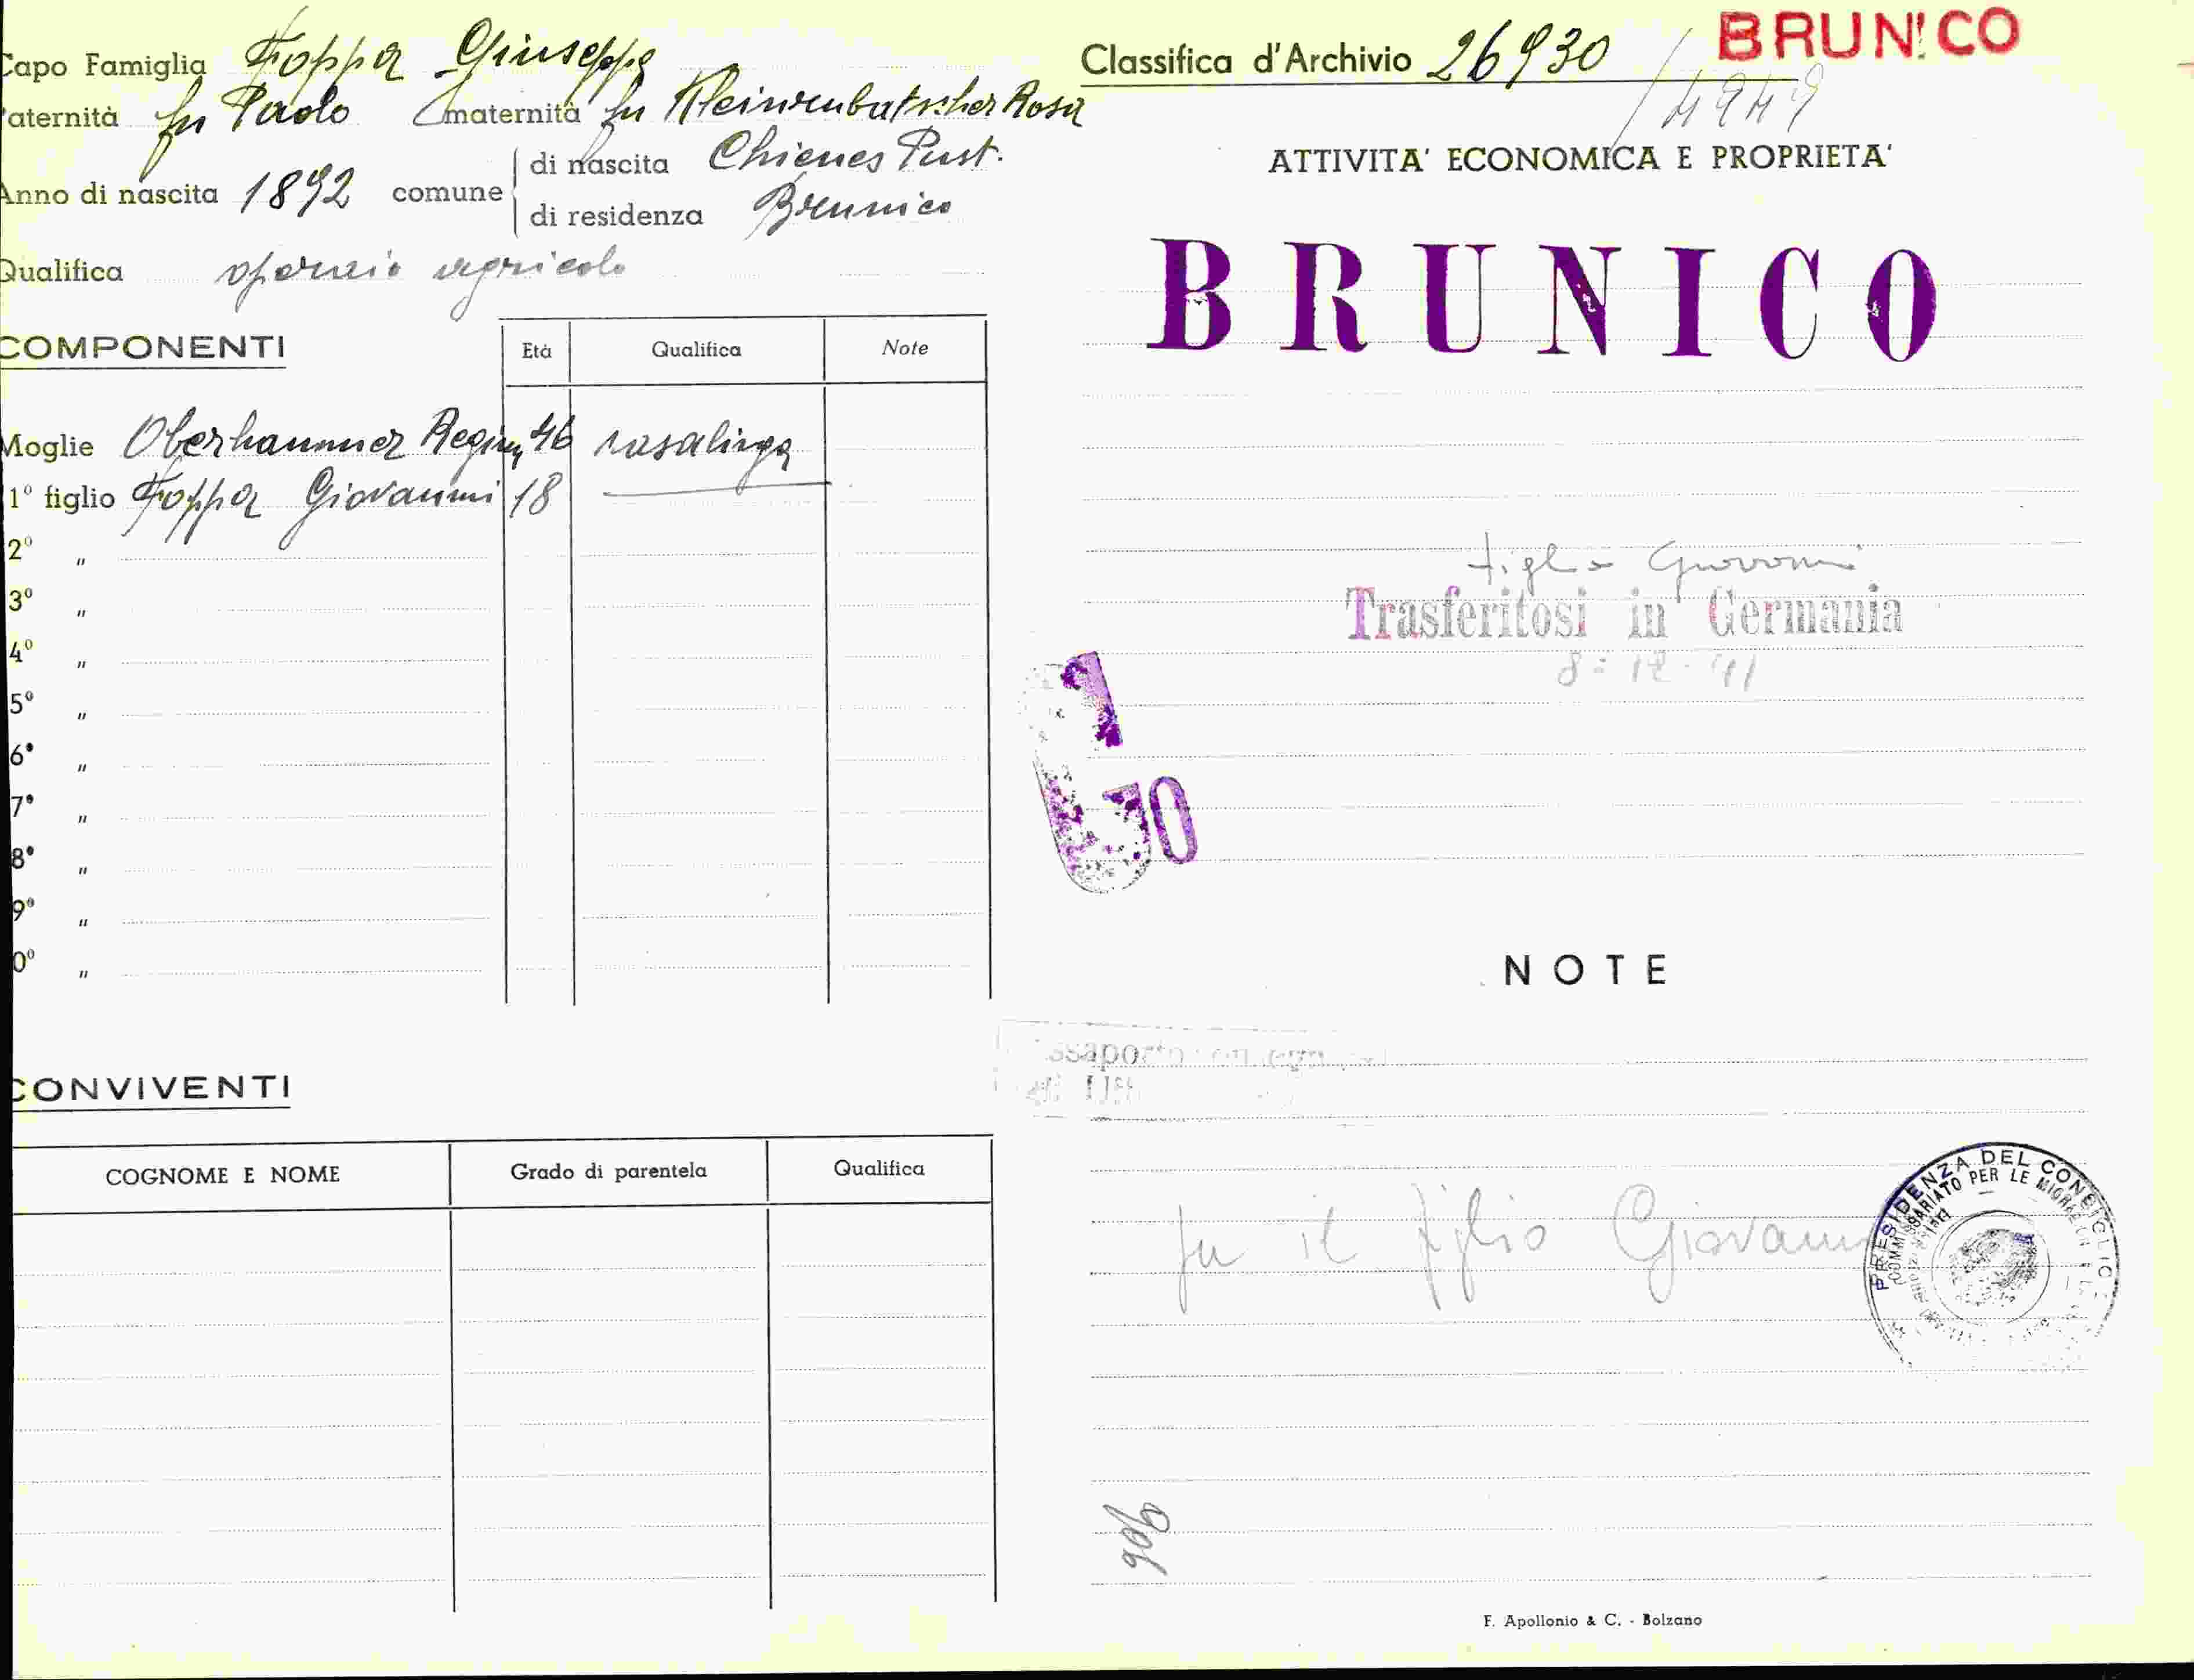 Capo Famiglia Foppa Giuseppe
Paternità fu Paolo maternità fu Rosa
Anno di nascita 1892 comune di nascita Chienes Pust.
di residenza Brunico
Qualifica operaio agricolo
COMPONENTI
Età Qualifica Note
Moglie Oberhammer Regina 46 casalinga
1° figlio Foppa Giovanni 18
2° "
3° "
4° "
5° "
6° "
7° "
8° "
9° "
0° "
CONVIVENTI
COGNOME E NOME Grado di parentela Qualifica
BRUNICO
Classifica d'Archivio 26930
/4949
ATTIVITA' ECONOMICA E PROPRIETA'
BRUNICO
figlio Giovanni
Trasferitosi in Germania
8-12-41
NOTE
fu il figlio Giovanni
PRESIDENZA DEL CONSIGLIO
906
F. Apollonio & C. - Bolzano